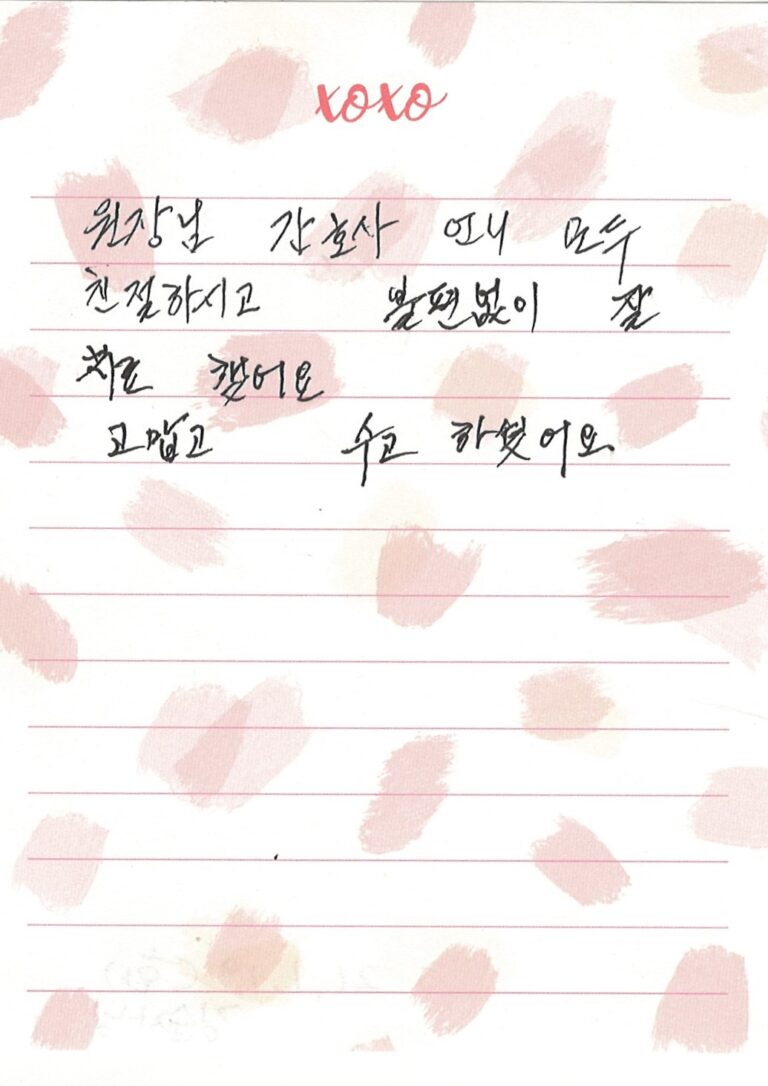 xoxo
원장님 간호사 언니 모두
친절하시고 불편없이 잘
치료 했어요
고맙고 수고 하셨어요